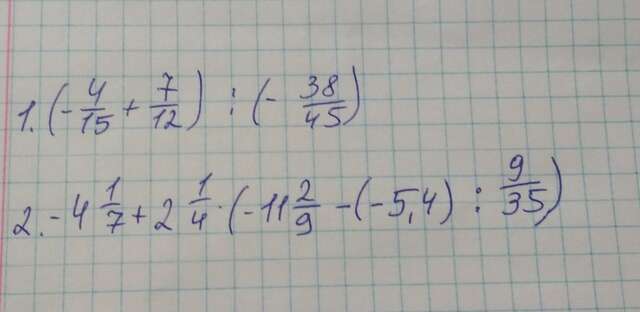 1. (- 4/15 + 7/12) : (- 38/45)
2. - 4 1/7 + 2 1/4 · (-11 2/9 - (-5,4) : 9/35)